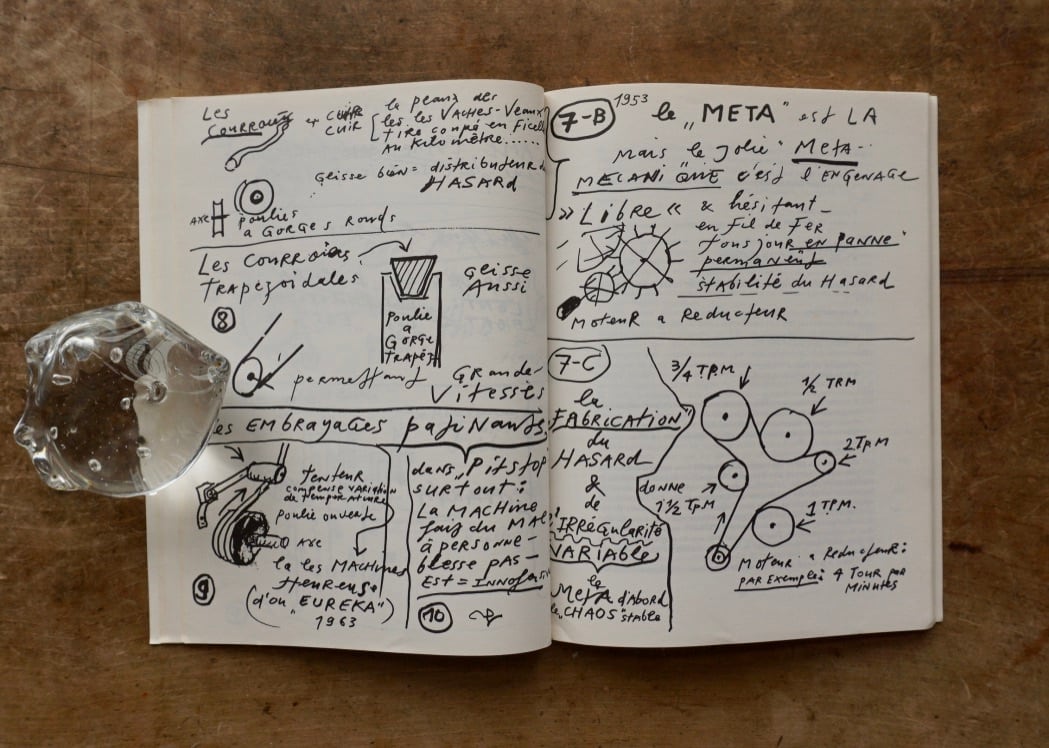 Les
COURROIES
et CUIR
CUIR
la peaux des
les les VACHES-Veaux
tire coupé en Ficelle
AU KiloMètre......
Glisse bien = distributeur de
HASARD
AXE
poulies
a GORGES Ronds
Les COURROIES
TRAPEZOÏDALES
GLISSE
AUSSI
Poulie
a
GORGE
TRAPÈZ
8
permettant GRANDE-
Vitesses
Les EMBRAYAGES patinants.
TENTEUR
COMPENSE VARIATION
de TEMPERATURE
Poulie ouverte
Axe
la les MACHINES
Heureuse
(d'ou „EUREKA")
1963
9
dans „Pitstop"
SURTOUT:
La MACHINE
fais du MAL
à personne-
blesse pas-
Est = INNOfensive
10
7-B
1953
le „META" est LA
Mais le Jolie „Meta-
MECANIQUE" c'est l'ENGENAGE
»LIBRE« & hésitant-
en fil de FER
tousjour „en panne"
permanent
stabilité du Hasard
MOTEUR a Reducteur
7-C
la
„FABRICATION"
du
HASARD
&
de
l'IRRégularité
VARIABLE
la
Meta d'Abord
le „CHAOS" stable
3/4 TPM
1/2 TRM
2 TPM
donne
1 1/2 TPM
1 TPM.
Moteur a Reducteur:
PAR Exemple: 4 Tour par
Minutes